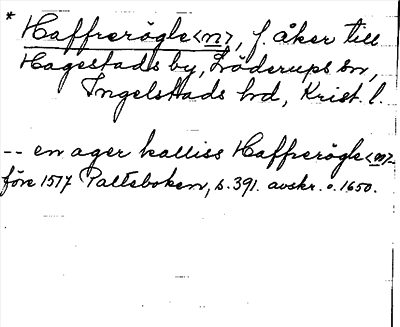 * Haffrerögle<n>, f. åker till
Hagestads by, Löderups sn,
Ingelstads hd, Krist. l.
-- en ager kalliss Haffrerögle<n>
före 1517 Palteboken, s. 391. avskr. o. 1650.